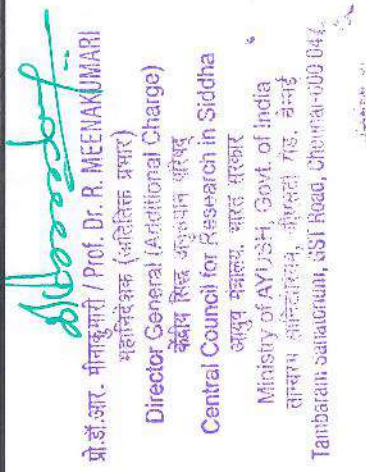 प्रो.डॉ.आर. मीनाकुमारी / Prof. Dr. R. MEENAKUMARI
महानिदेशक (अतिरिक्त प्रभार)
Director General (Additional Charge)
केंद्रीय सिद्ध अनुसंधान परिषद्
Central Council for Research in Siddha
आयुष मंत्रालय, भारत सरकार
Ministry of AYUSH, Govt. of India
Tambaram Sanatorium, GST Road, Chennai-600 047.